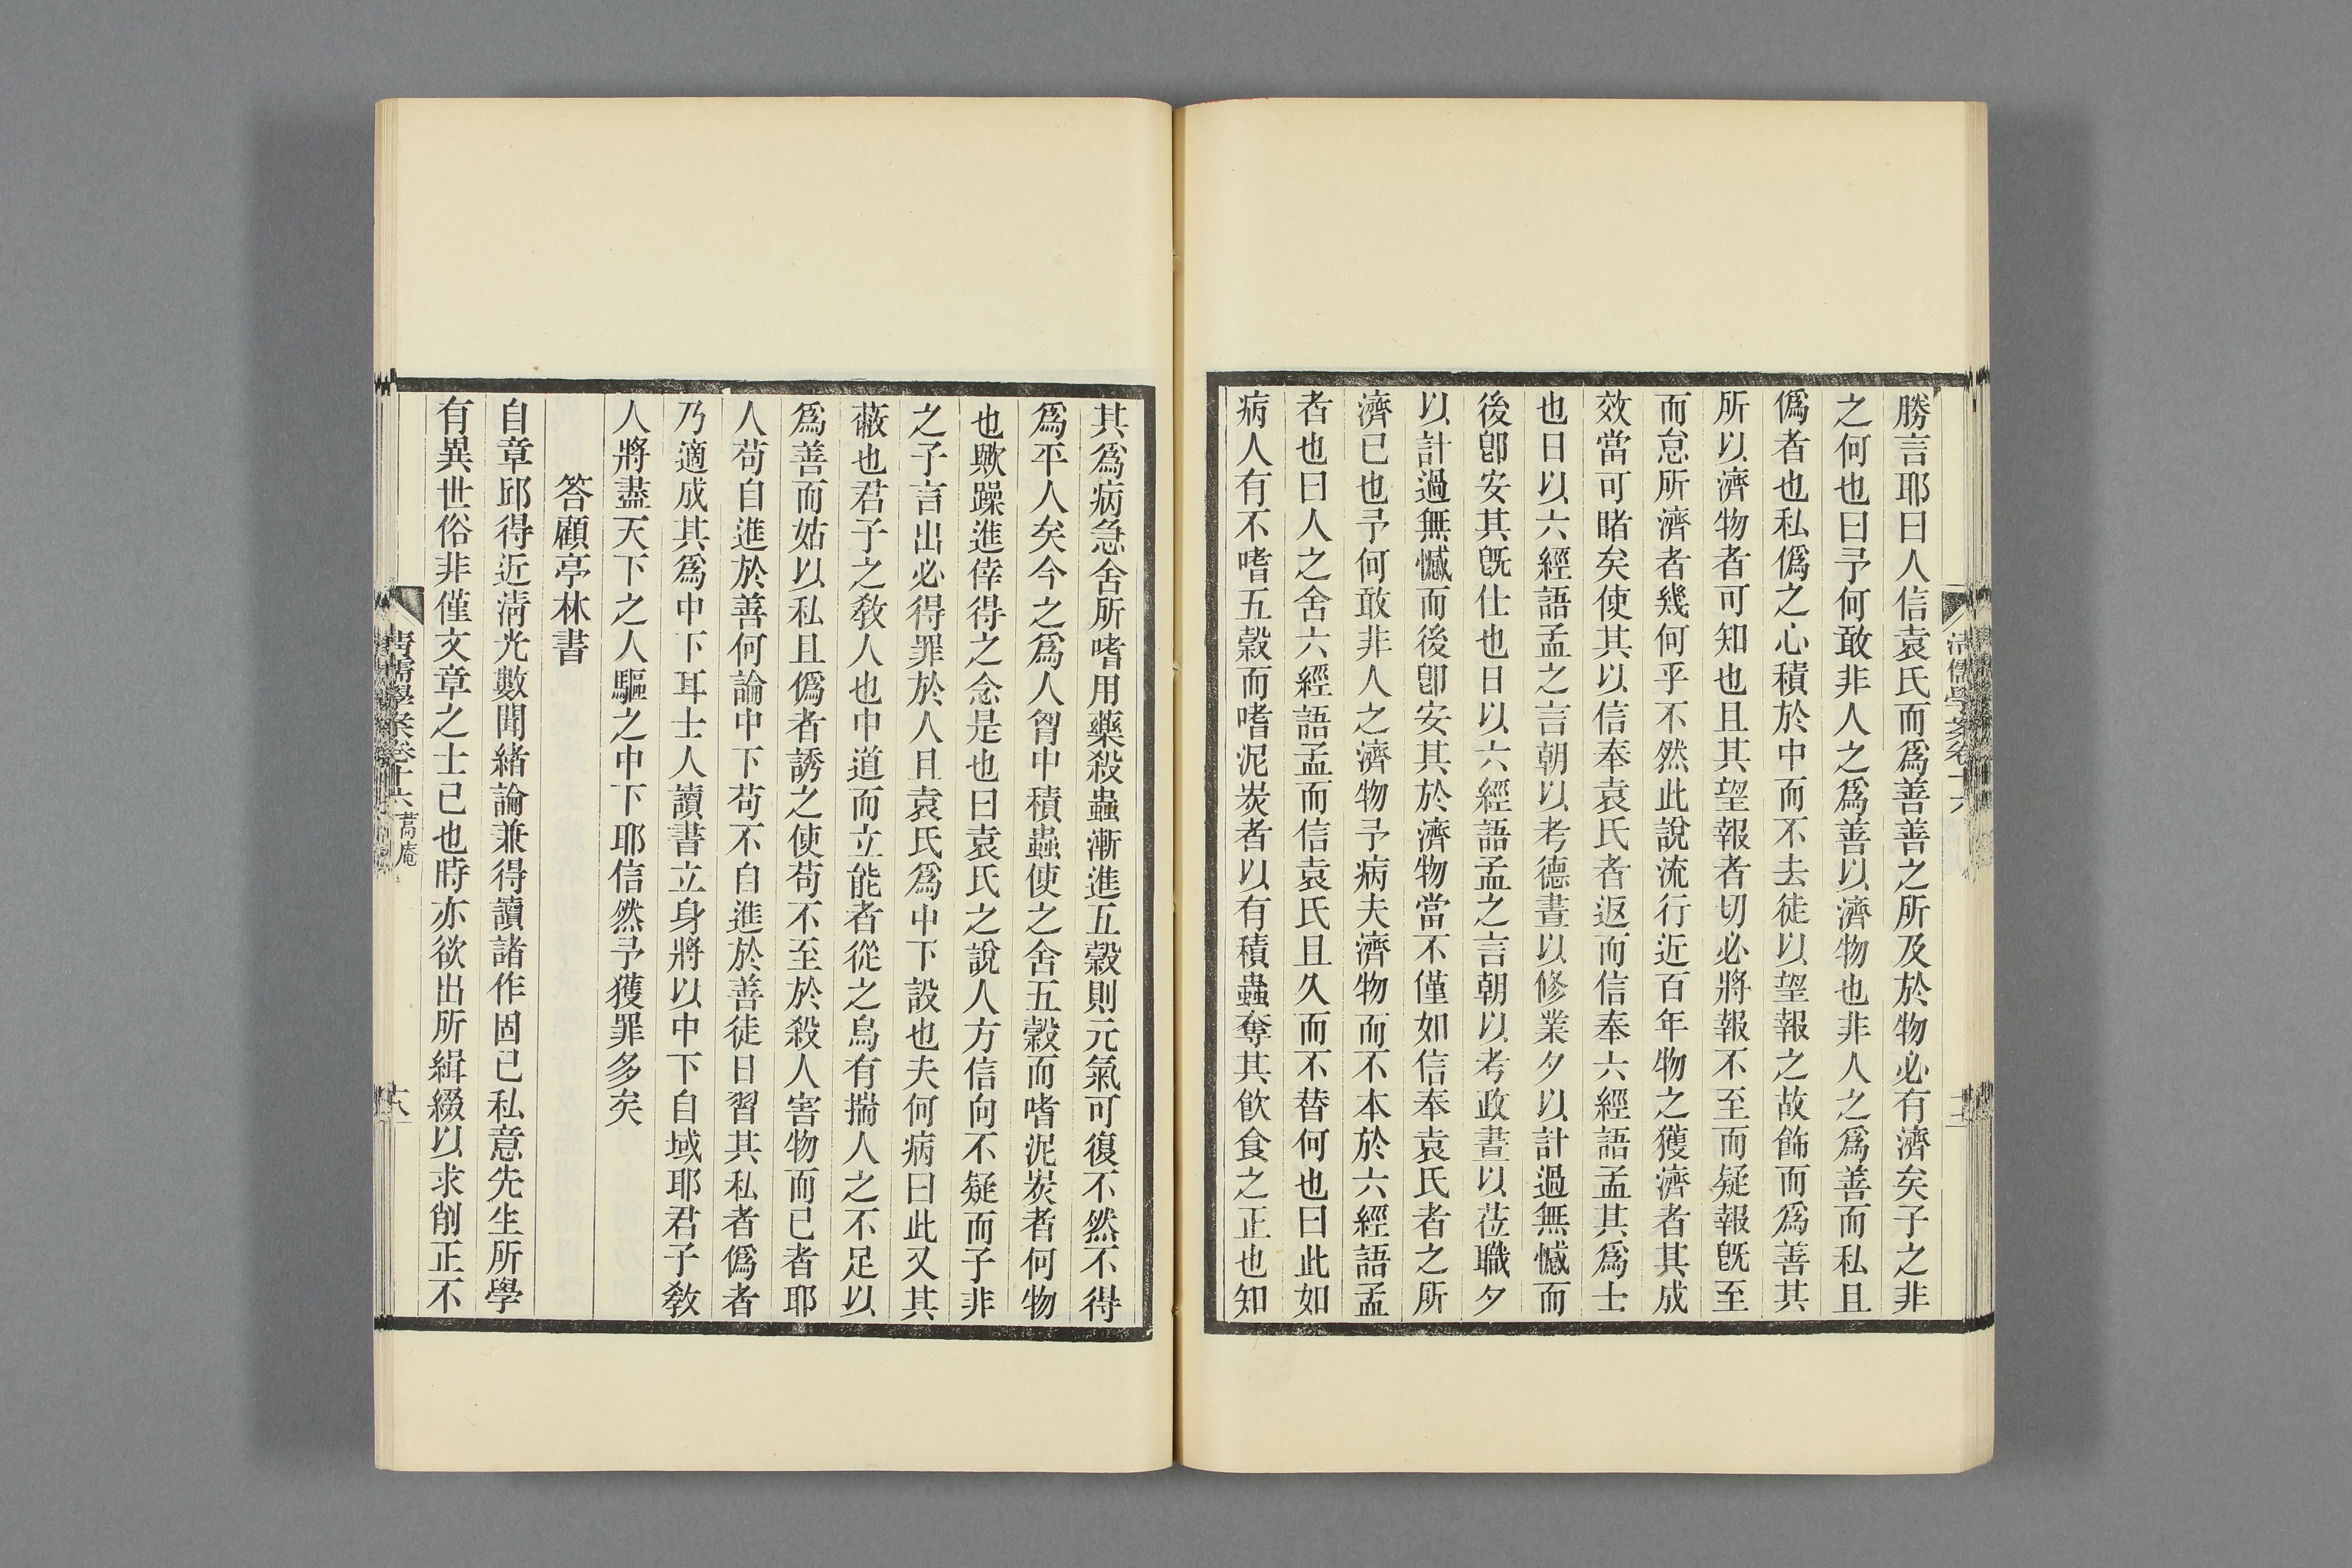 勝言耶曰人信袁氏而爲善善之所及於物必有濟矣子之非
之何也曰予何敢非人之爲善以濟物也非人之爲善而私且
僞者也私僞之心積於中而不去徒以望報之故飾而爲善其
所以濟物者可知也且其望報者切必將報不至而疑報旣至
而怠所濟者幾何乎不然此說流行近百年物之獲濟者其成
效當可睹矣使其以信奉袁氏者返而信奉六經語孟其爲士
也日以六經語孟之言朝以考德晝以修業夕以計過無憾而
後卽安其旣仕也日以六經語孟之言朝以考政晝以莅職夕
以計過無憾而後卽安其於濟物當不僅如信奉袁氏者之所
濟已也予何敢非人之濟物予病夫濟物而不本於六經語孟
者也曰人之舍六經語孟而信袁氏且久而不替何也曰此如
病人有不嗜五穀而嗜泥炭者以有積蟲奪其飮食之正也知
其爲病急舍所嗜用藥殺蟲漸進五穀則元氣可復不然不得
爲平人矣今之爲人胷中積蟲使之舍五穀而嗜泥炭者何物
也歟躁進倖得之念是也曰袁氏之說人方信向不疑而子非
之子言出必得罪於人且袁氏爲中下設也夫何病曰此又其
蔽也君子之敎人也中道而立能者從之烏有揣人之不足以
爲善而姑以私且僞者誘之使苟不至於殺人害物而已者耶
人苟自進於善何論中下苟不自進於善徒日習其私者僞者
乃適成其爲中下耳士人讀書立身將以中下自域耶君子敎
人將盡天下之人驅之中下耶信然予獲罪多矣
答顧亭林書
自章邱得近淸光數聞緒論兼得讀諸作固已私意先生所學
有異世俗非僅文章之士已也時亦欲出所緝綴以求削正不
淸儒學案卷十六 蒿庵